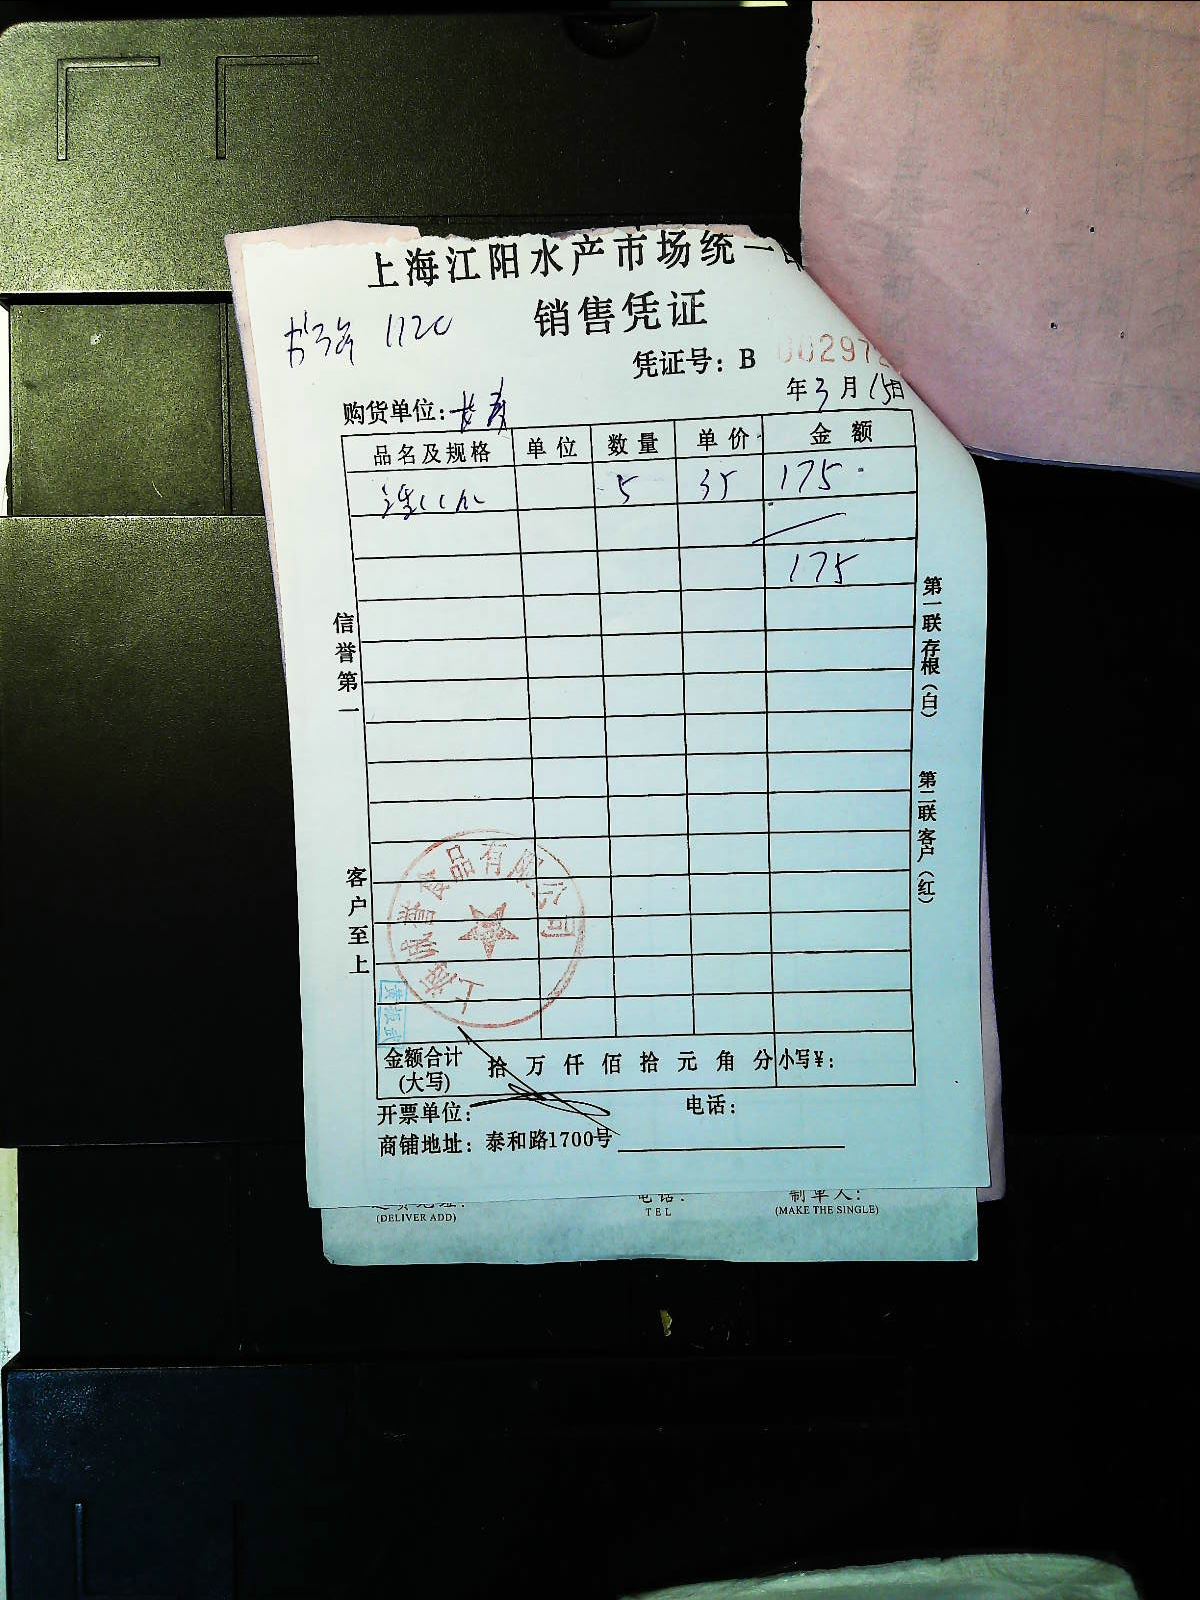 上海江阳水产市场统一
销售凭证
1120
凭证号：B 002972
年3月15日
购货单位：长寿
品名及规格 单位 数量 单价 金额
5 35 175
175
信誉第一
客户至上
第一联存根（白）
第二联客户（红）
食品有限公司
上海
金额合计（大写） 拾万仟佰拾元角分 小写¥：
开票单位： 电话：
商铺地址：泰和路1700号
(DELIVER ADD)
电话：
TEL
制单人：
(MAKE THE SINGLE)